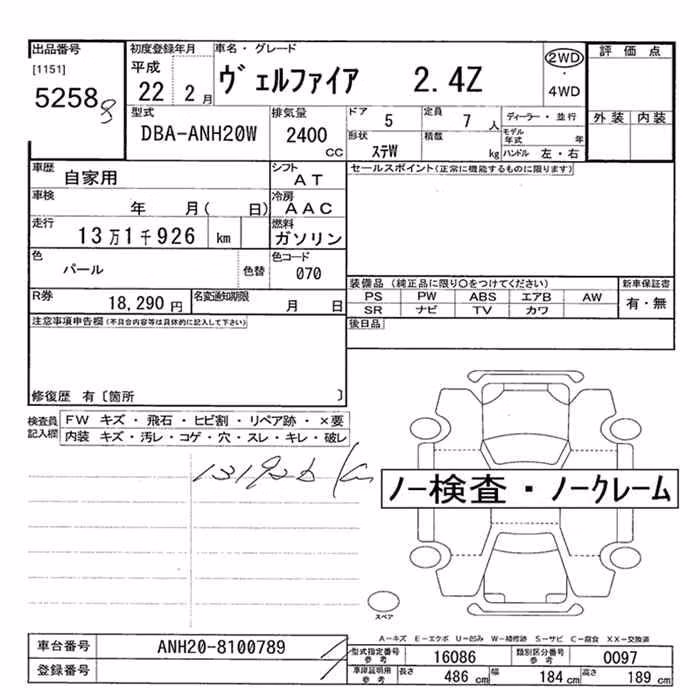 出品番号
[1151]
52588
初度登録年月
平成
22 2月
車名・グレード
ヴェルファイア 2.4Z
2WD
・
4WD
評価点
外装 内装
型式
DBA-ANH20W
排気量
2400
CC
ドア
5
定員
7 人
ディーラー・並行
形状
ステW
積載
kg
モデル年式 年
ハンドル 左・右
車歴
自家用
シフト
AT
車検
年 月( 日)
冷房
AAC
走行
13万1千926 km
燃料
ガソリン
色
パール
色替
色コード
070
R券
18,290 円
名変通知期限
月 日
セールスポイント(正常に機能するものに限ります)
装備品 (純正品に限り○をつけてください)
PS PW ABS エアB AW
SR ナビ TV カワ
新車保証書
有・無
後日品
注意事項申告欄(不具合内容等は具体的に記入して下さい)
修復歴 有〔箇所 〕
検査員記入欄
FW キズ・飛石・ヒビ割・リペア跡・×要
内装 キズ・汚レ・コゲ・穴・スレ・キレ・破レ
131926 km
ノー検査・ノークレーム
スペア
A―キズ E―エクボ U―凹み W―補修跡 S―サビ C―腐食 XX―交換済
車台番号
ANH20-8100789
登録番号
型式指定番号 参考
16086
類別区分番号 参考
0097
車庫証明用 参考
長さ 486 cm
幅 184 cm
高さ 189 cm